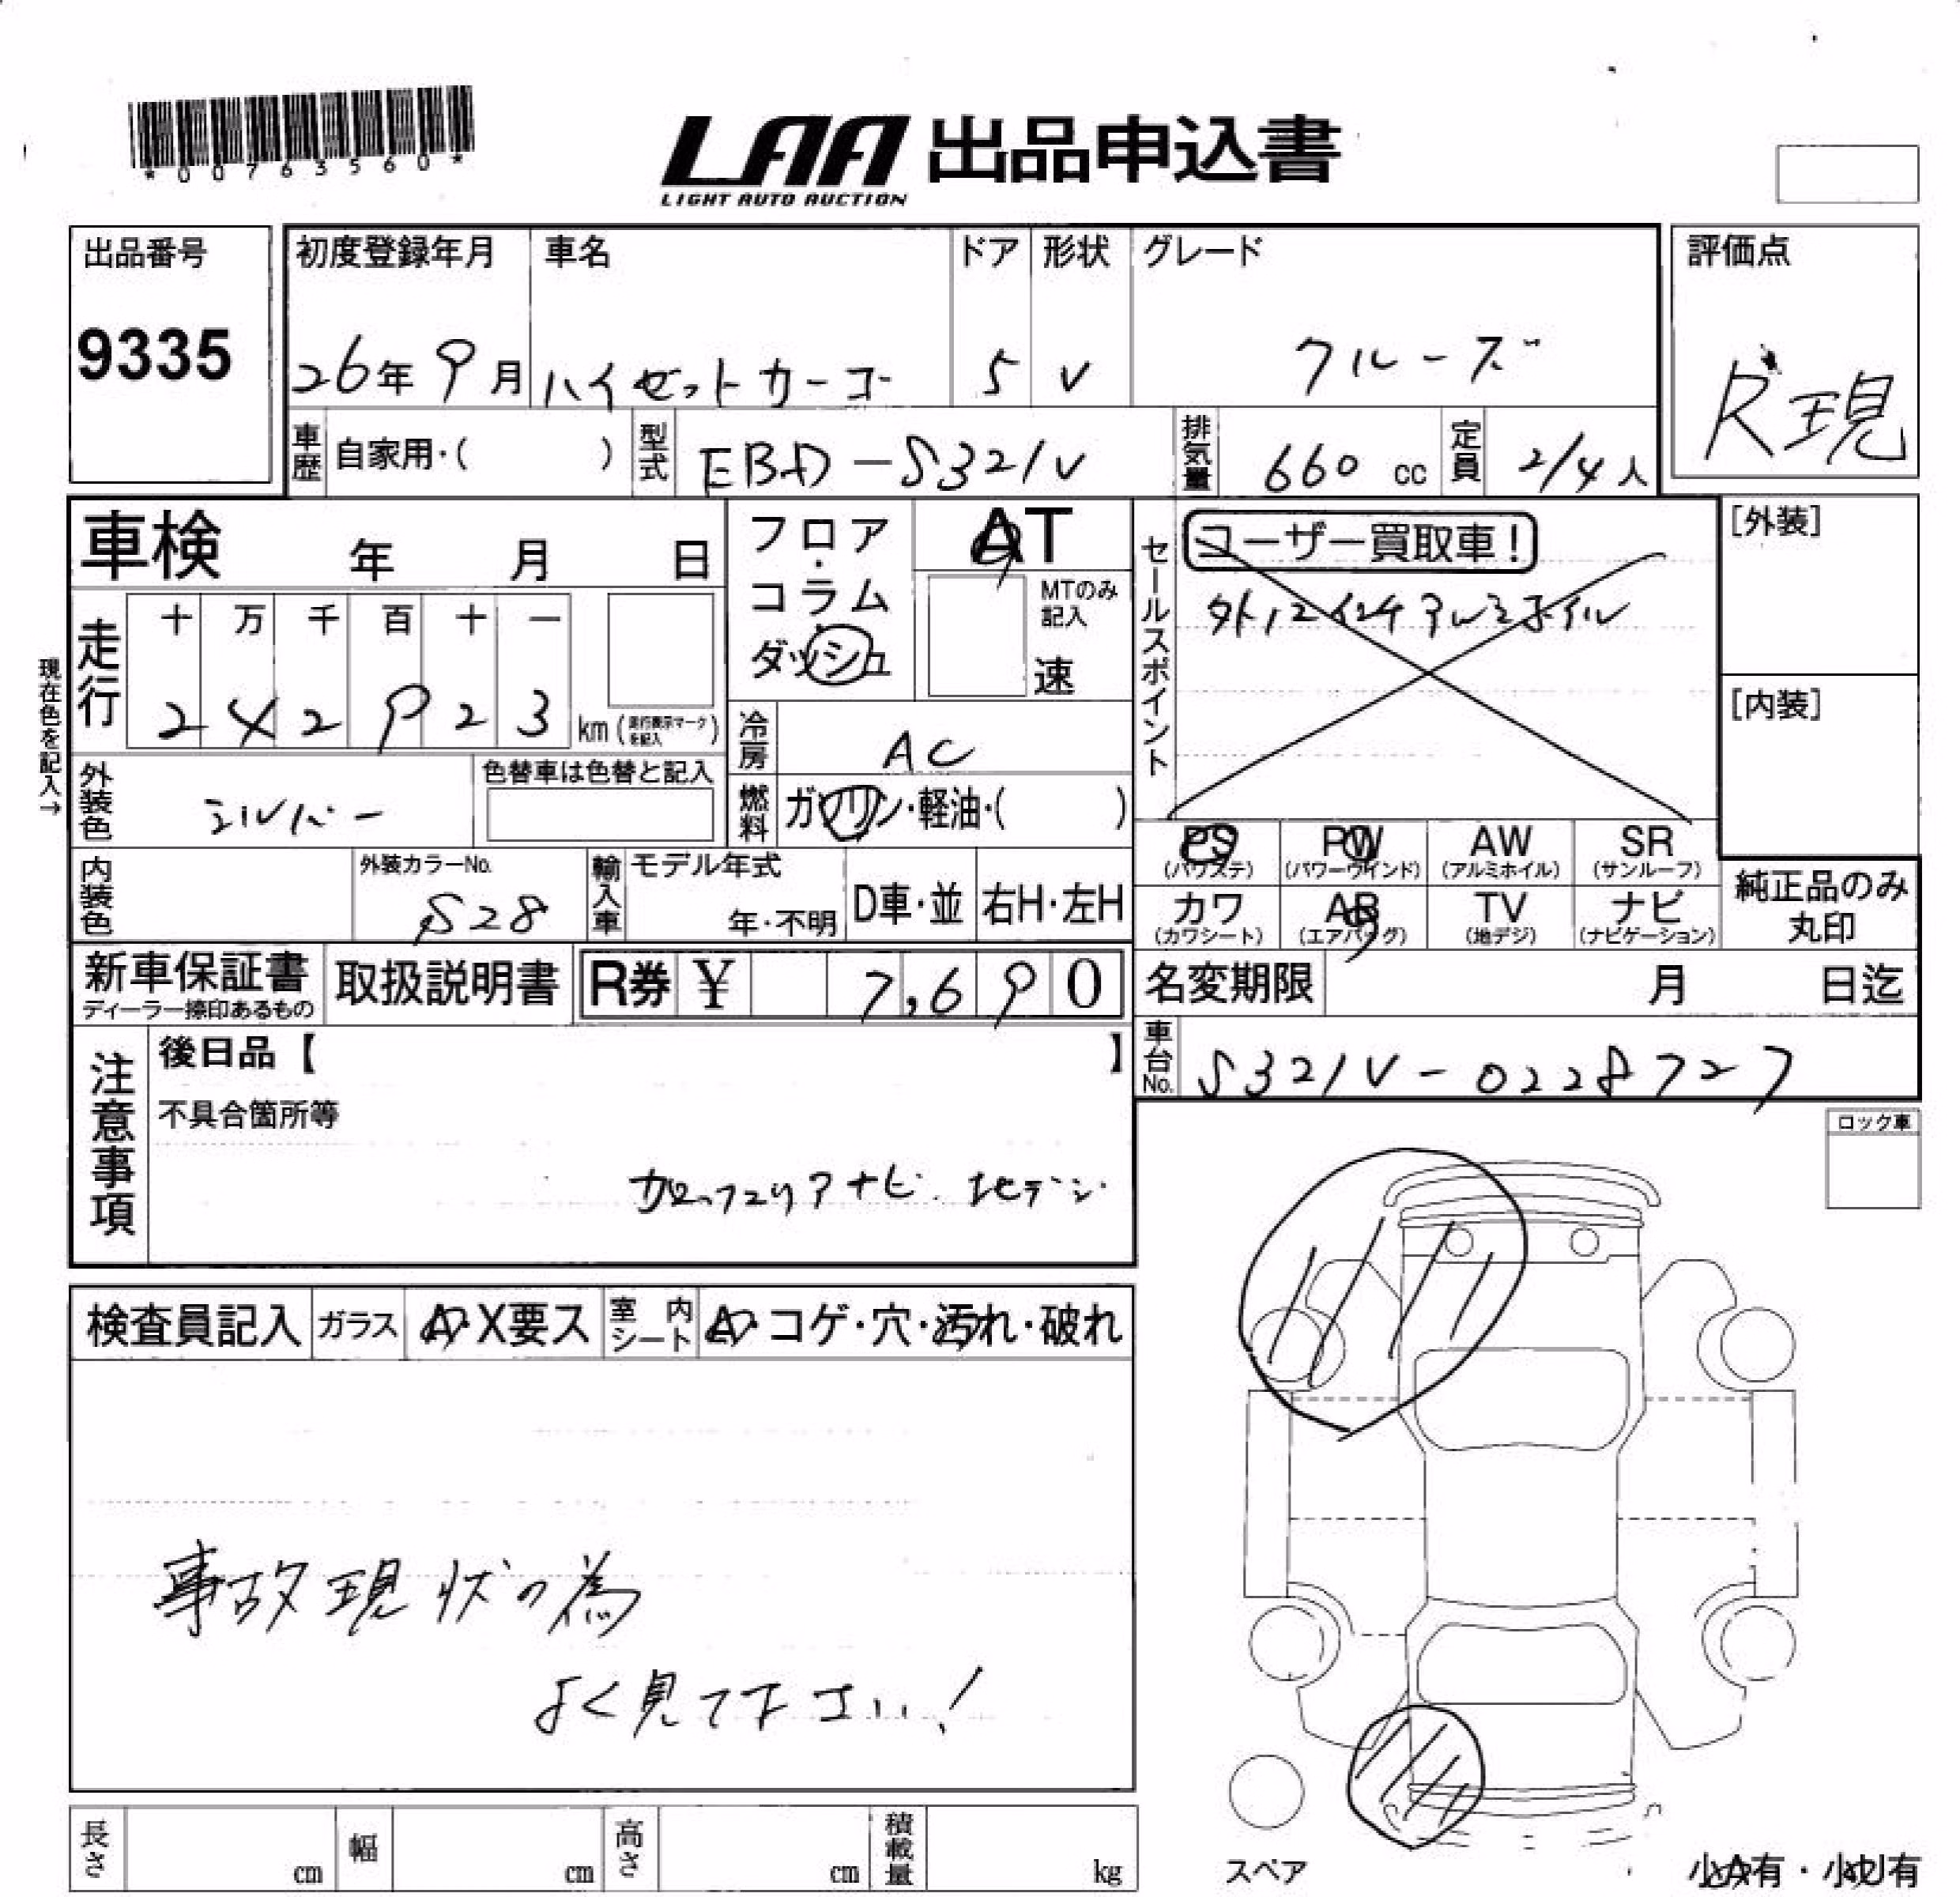 *00763560*
LAA 出品申込書
LIGHT AUTO AUCTION
出品番号
9335
初度登録年月 車名 ドア 形状 グレード
26年9月 ハイゼットカーゴ 5 V クルーズ
評価点
R現
車歴 自家用・( ) 型式 EBD-S321V 排気量 660 cc 定員 2/4人
車検 年 月 日
フロア・コラム・ダッシュ
AT
MTのみ記入
速
走行 十 万 千 百 十 一
242923 km(走行表示マークを記入)
現在色を記入→
冷房 AC
燃料 ガソリン・軽油・( )
外装色 シルバー 色替車は色替と記入
内装色 外装カラーNo. S28
輸入車 モデル年式 年・不明 D車・並 右H・左H
セールスポイント
ユーザー買取車!
外12インチアルミホイル
[外装]
[内装]
PS (パワステ) PW (パワーウインド) AW (アルミホイル) SR (サンルーフ)
カワ (カワシート) AB (エアバッグ) TV (地デジ) ナビ (ナビゲーション)
純正品のみ丸印
新車保証書 ディーラー捺印あるもの 取扱説明書 R券 ¥ 7,690
名変期限 月 日迄
車台No. S321V-0228727
注意事項
後日品【 】
不具合箇所等
ナビ 地デジ
ロック車
検査員記入 ガラス A・X要ス 室内シート A・コゲ・穴・汚れ・破れ
事故現状の為
よく見て下さい!
長さ cm 幅 cm 高さ cm 積載量 kg
スペア
小A有・小U有